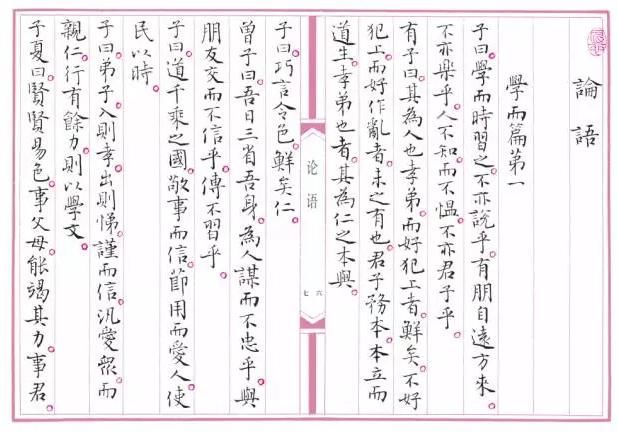 論語
學而篇第一
子曰。學而時習之。不亦說乎。有朋自遠方來。
不亦樂乎。人不知而不慍。不亦君子乎。
有子曰。其為人也孝弟。而好犯上者。鮮矣。不好
犯上。而好作亂者。未之有也。君子務本。本立而
道生。孝弟也者。其為仁之本與。
论语
六
七
子曰。巧言令色。鮮矣仁。
曾子曰。吾日三省吾身。為人謀而不忠乎。與
朋友交而不信乎。傳不習乎。
子曰。道千乘之國。敬事而信。節用而愛人。使
民以時。
子曰。弟子入則孝。出則悌。謹而信。汎愛眾。而
親仁。行有餘力。則以學文。
子夏曰。賢賢易色。事父母能竭其力。事君